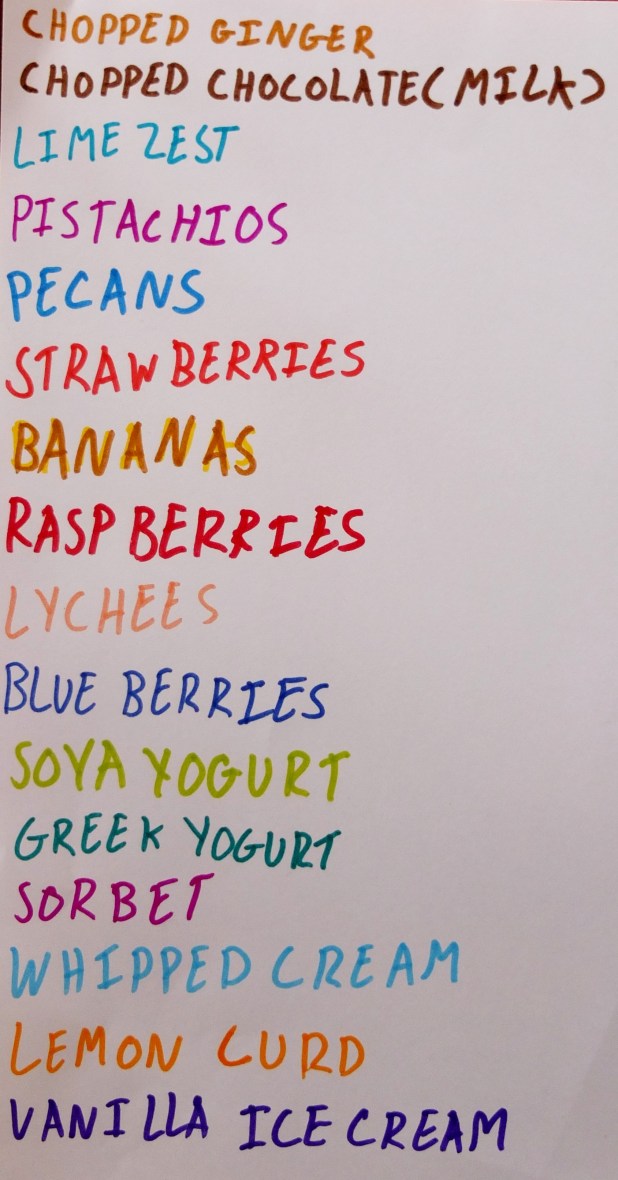 CHOPPED GINGER
CHOPPED CHOCOLATE(MILK)
LIME ZEST
PISTACHIOS
PECANS
STRAWBERRIES
BANANAS
RASPBERRIES
LYCHEES
BLUE BERRIES
SOYA YOGURT
GREEK YOGURT
SORBET
WHIPPED CREAM
LEMON CURD
VANILLA ICE CREAM